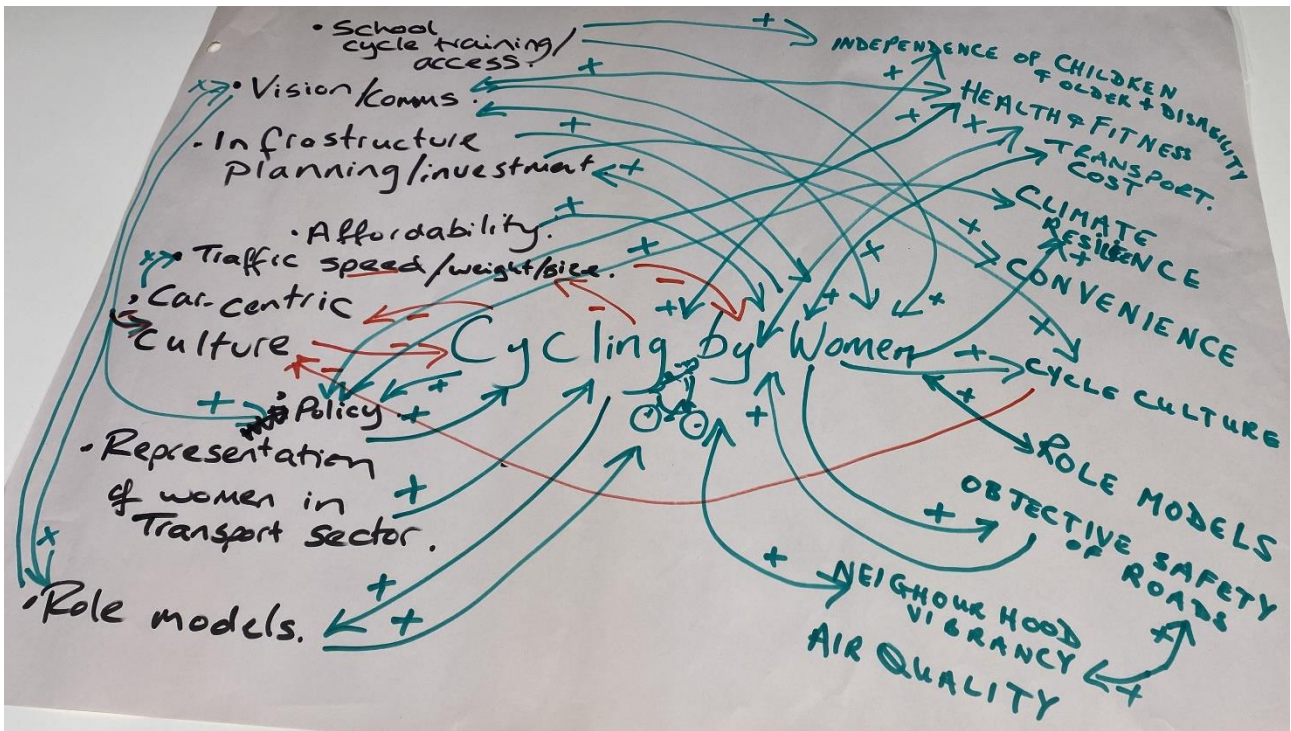 • School
cycle training/
access.
• Vision/Comms.
• Infrostructure
planning/investment
• Affordability.
• Traffic speed/weight/size.
• Car-centric
Culture
• Policy
• Representation
of women in
Transport sector.
• Role models.
Cycling by Women
INDEPENDENCE OF CHILDREN
& OLDER + DISABILITY
HEALTH & FITNESS
TRANSPORT
COST.
CLIMATE
RESILIENCE
CONVENIENCE
CYCLE CULTURE
ROLE MODELS
OBJECTIVE SAFETY
OF ROADS
NEIGHOUR HOOD
VIBRANCY
AIR QUALITY